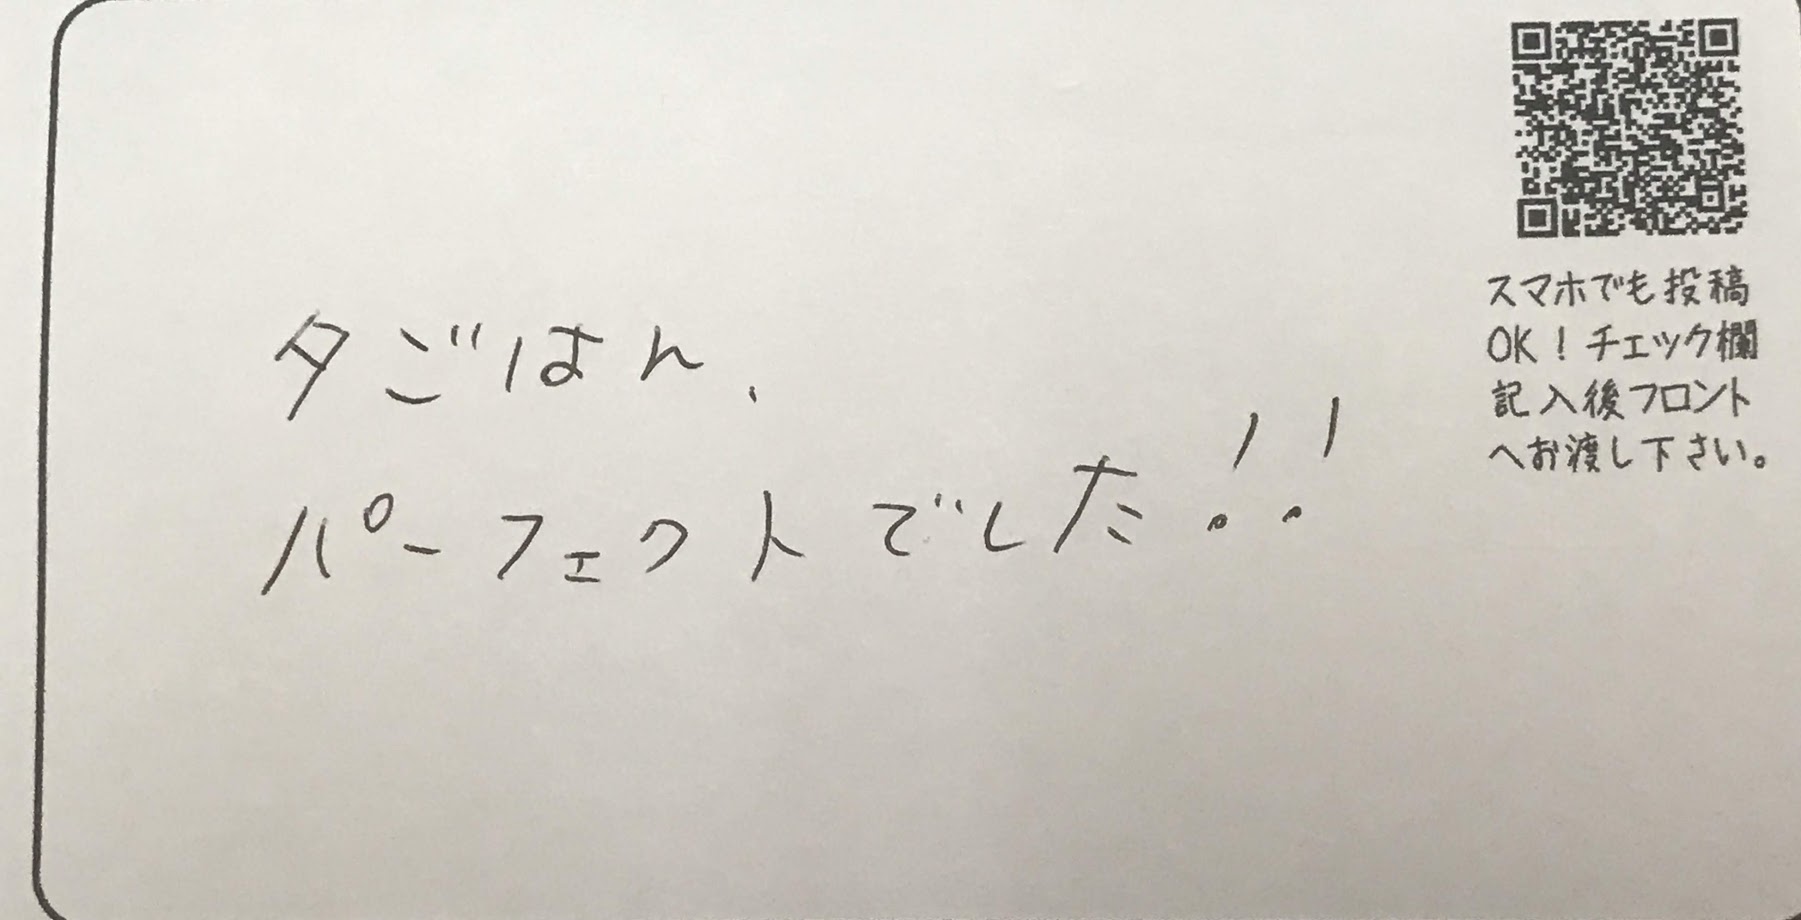 夕ごはん、
パーフェクトでした!!
スマホでも投稿
OK!チェック欄
記入後フロント
へお渡し下さい。